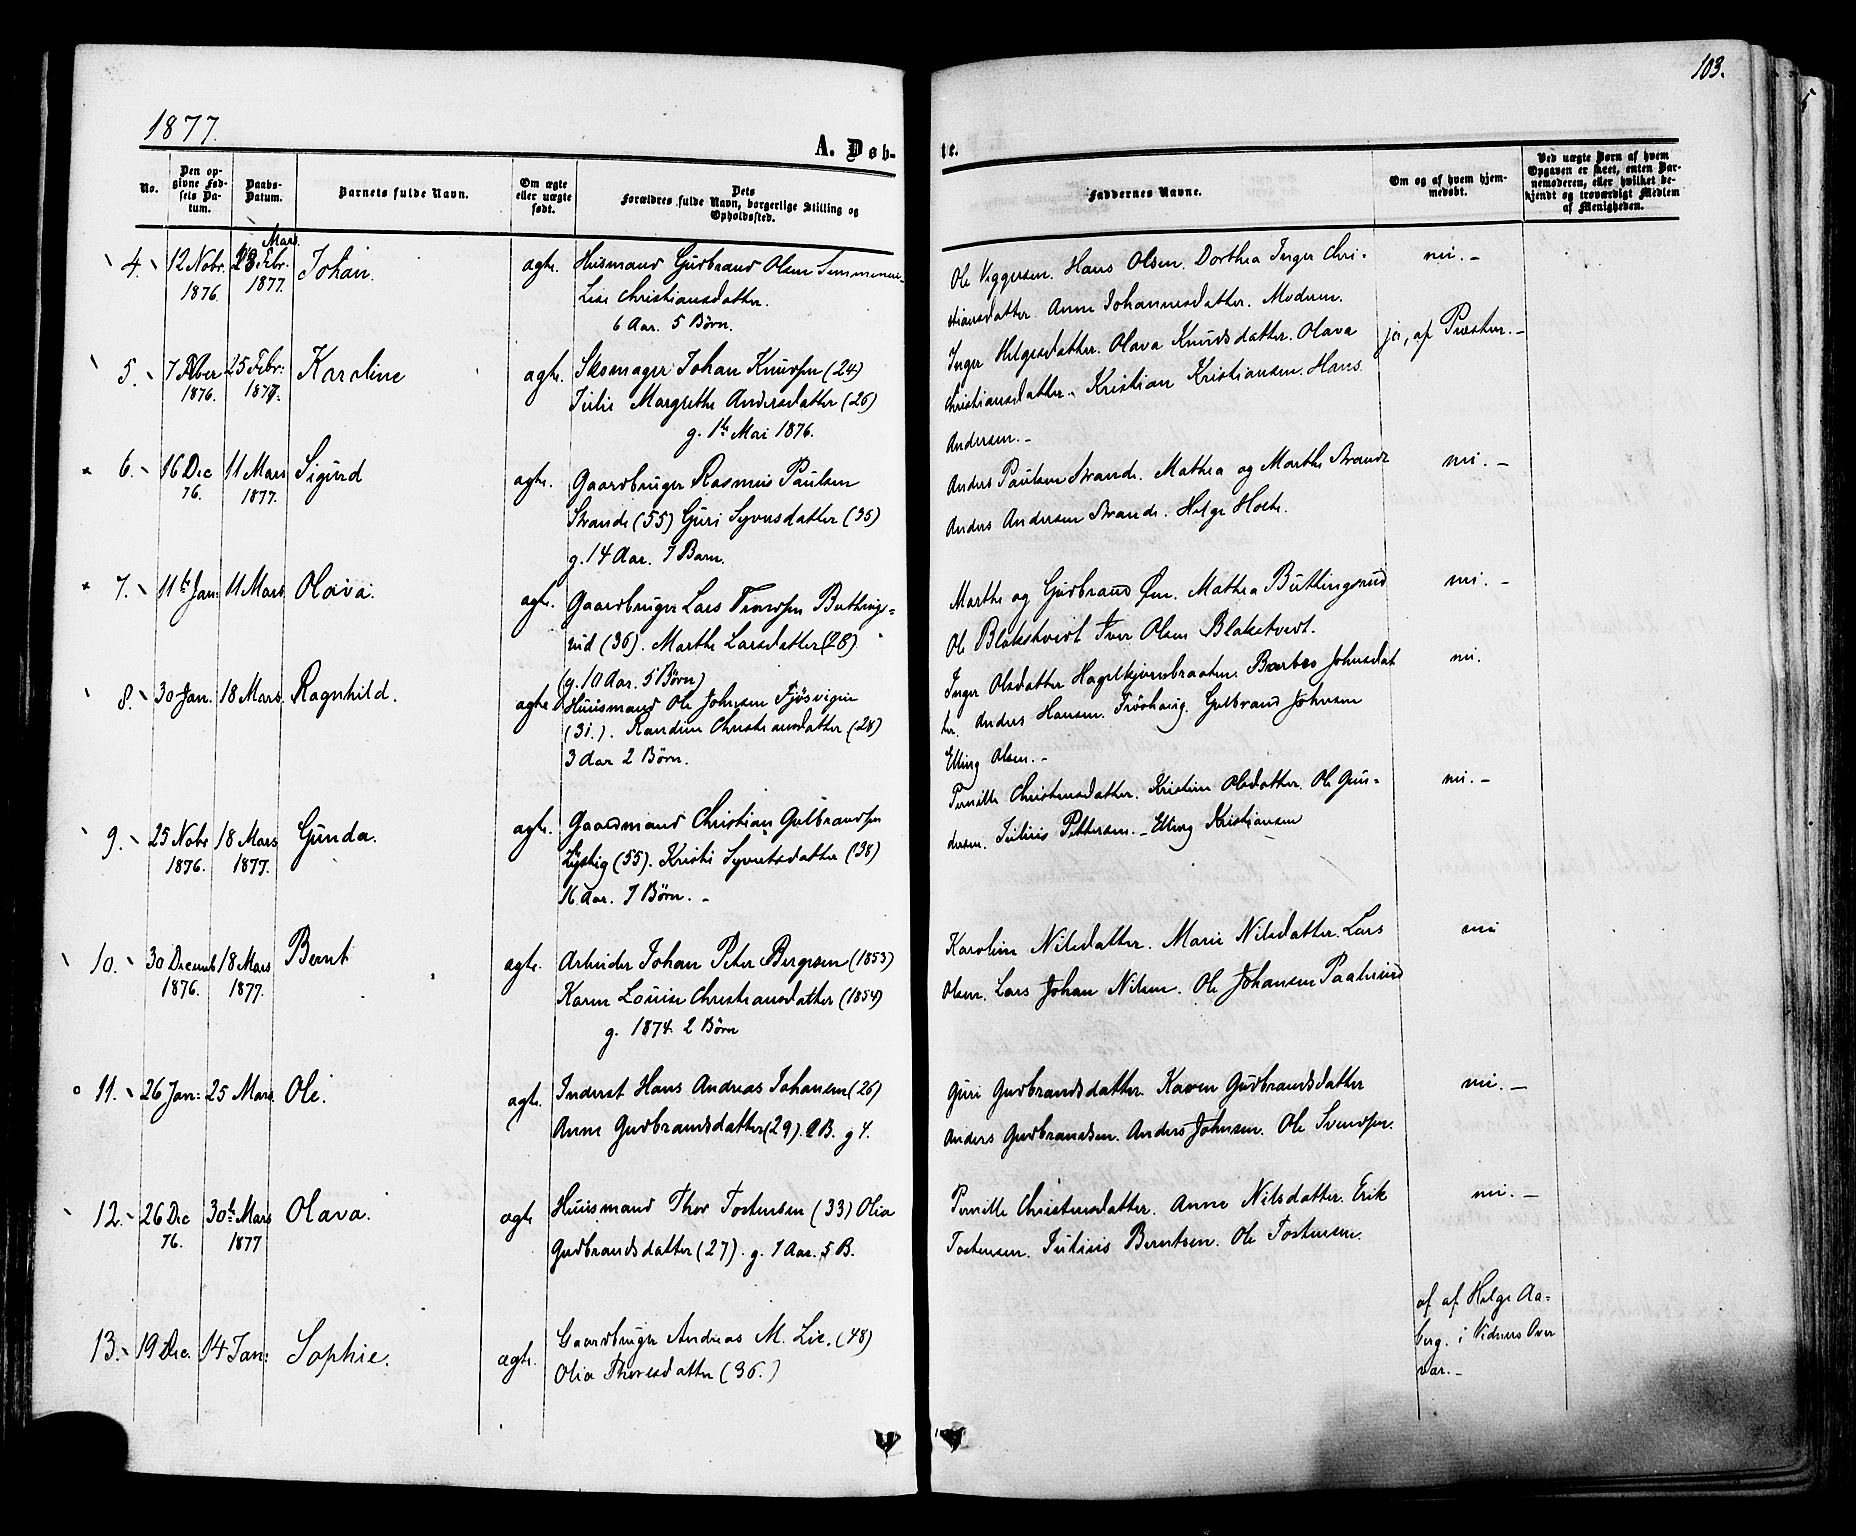 103.
1877.
A. Døb-
te.
No.
Den op-
givne Fød-
sels Da-
tum.
Daabs-
Datum.
Barnets fulde Navn.
Om ægte
eller uægte
født.
Dets
Forældres fulde Navn, borgerlige Stilling og
Opholdssted.
Faddernes Navne.
Om og af hvem hjem-
medøbt.
Ved uægte Børn af hvem
Opgaven er skeet, enten Bar-
nemoderen, eller hvilket be-
kjendt og troværdigt Medlem
af Menigheden.
4. 12 Nobr. 1876. Mars 1877. Johan. ægte.
Husmand Gudbrand Olsen
Lise Christiansdatter.
6 Aar. 5 Børn.
Ole Viggersen. Hans Olsen. Dorthea Inger Chri-
stiansdatter. Anne Johannesdatter. Moderen.
nei. -
5. 7 1876. 25 Febr: 1877. Karoline ægte.
Skomager Johan Knudsen (24)
Julie Margrethe Andersdatter (26)
g. 1te Mai 1876.
Inger Helgesdatter. Olava Knudsdatter. Olava
Christiansdatter. Kristian Kristiansen. Hans
Andersen. -
ja, af Præsten. -
6. 16 Dec 76. 11 Mars 1877. Sigurd ægte.
Gaardbruger Rasmus Paulsen
Strande (55) Guri Syversdatter (35)
g. 14 Aar. 7 Barn.
Anders Paulsen Strande. Mathea og Marthe Strande
Anders Andersen Strande. Helge
nei. -
7. 11te Jan: 11 Mars Olava. ægte.
Gaardbruger Lars Trondsen Buttings-
rud (36). Marthe Larsdatter (28)
(g. 10 Aar. 5 Børn)
Marthe og Gudbrand Mathea Buttingsrud
Ole Blakstvedt Iver Olsen Blakstvedt.
nei. -
8. 30 Jan. 18 Mars. Ragnhild. ægte
Huusmand Ole Johnsen
(31.). Randine Christiansdatter (28)
3 Aar 2 Børn.
Inger Olsdatter Barbro Johnsdat
ter. Anders Hansen. Gulbrand Johnsen
Elling Olsen. -
nei.
9. 25 Nobr 1876. 18 Mars 1877. Gunda. ægte.
Gaardmand Christian Gulbrandsen
(55). Kristi Syvertsdatter (38)
16 Aar. 7 Børn. -
Pernille Christensdatter. Kristine Olsdatter. Ole Gun-
dersen. Julius Pettersen. - Elling Kristiansen
nei. -
10. 30 Decemb 1876. 18 Mars 1877. Bernt ægte.
Arbeider Johan Peter Bergersen (1853)
Karen Louise Christiansdatter (1854)
g. 1874. 2 Børn
Karoline Nilsdatter. Marie Nilsdatter. Lars
Olsen. Lars Johan Nilsen. Ole Johansen Paalerud
nei
11. 26 Jan: 25 Mars. Ole. ægte.
Inderst Hans Andreas Johansen (26)
Anne Gudbrandsdatter (29). 2 B. g 4.
Guri Gudbrandsdatter. Karen Gudbrandsdatter
Anders Gudbrandsen. Anders Johnsen. Ole Svendsen.
nei. -
12. 26 Dec 76. 30te Mars 1877 Olava. ægte
Huusmand Thor Tostensen (33) Olia
Gudbrandsdatter (27). g. 7 Aar. 5 B.
Pernille Christensdatter. Anne Nilsdatter. Erik
Tostensen. Julius Berntsen. Ole Tostensen.
nei. -
13. 19 Dec. 14 Jan: Sophie. ægte.
Gaardbruger Andreas M. Lie. (48)
Olia Thoresdatter (36.)
af af Helge Aa-
berg. i Vidners Over
vær. -